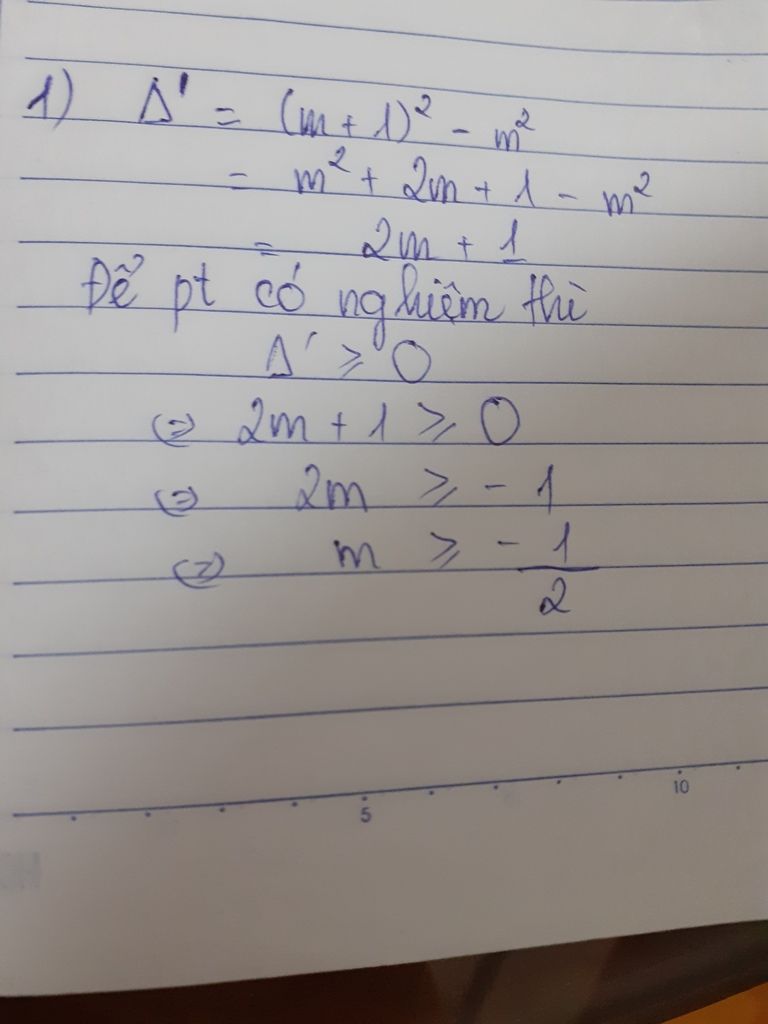 1) Δ' = (m + 1)² - m²
= m² + 2m + 1 - m²
= 2m + 1
Để pt có nghiệm thì
Δ' ⩾ 0
(=) 2m + 1 ⩾ 0
(=) 2m ⩾ - 1
(=) m ⩾ - 1/2
5 10